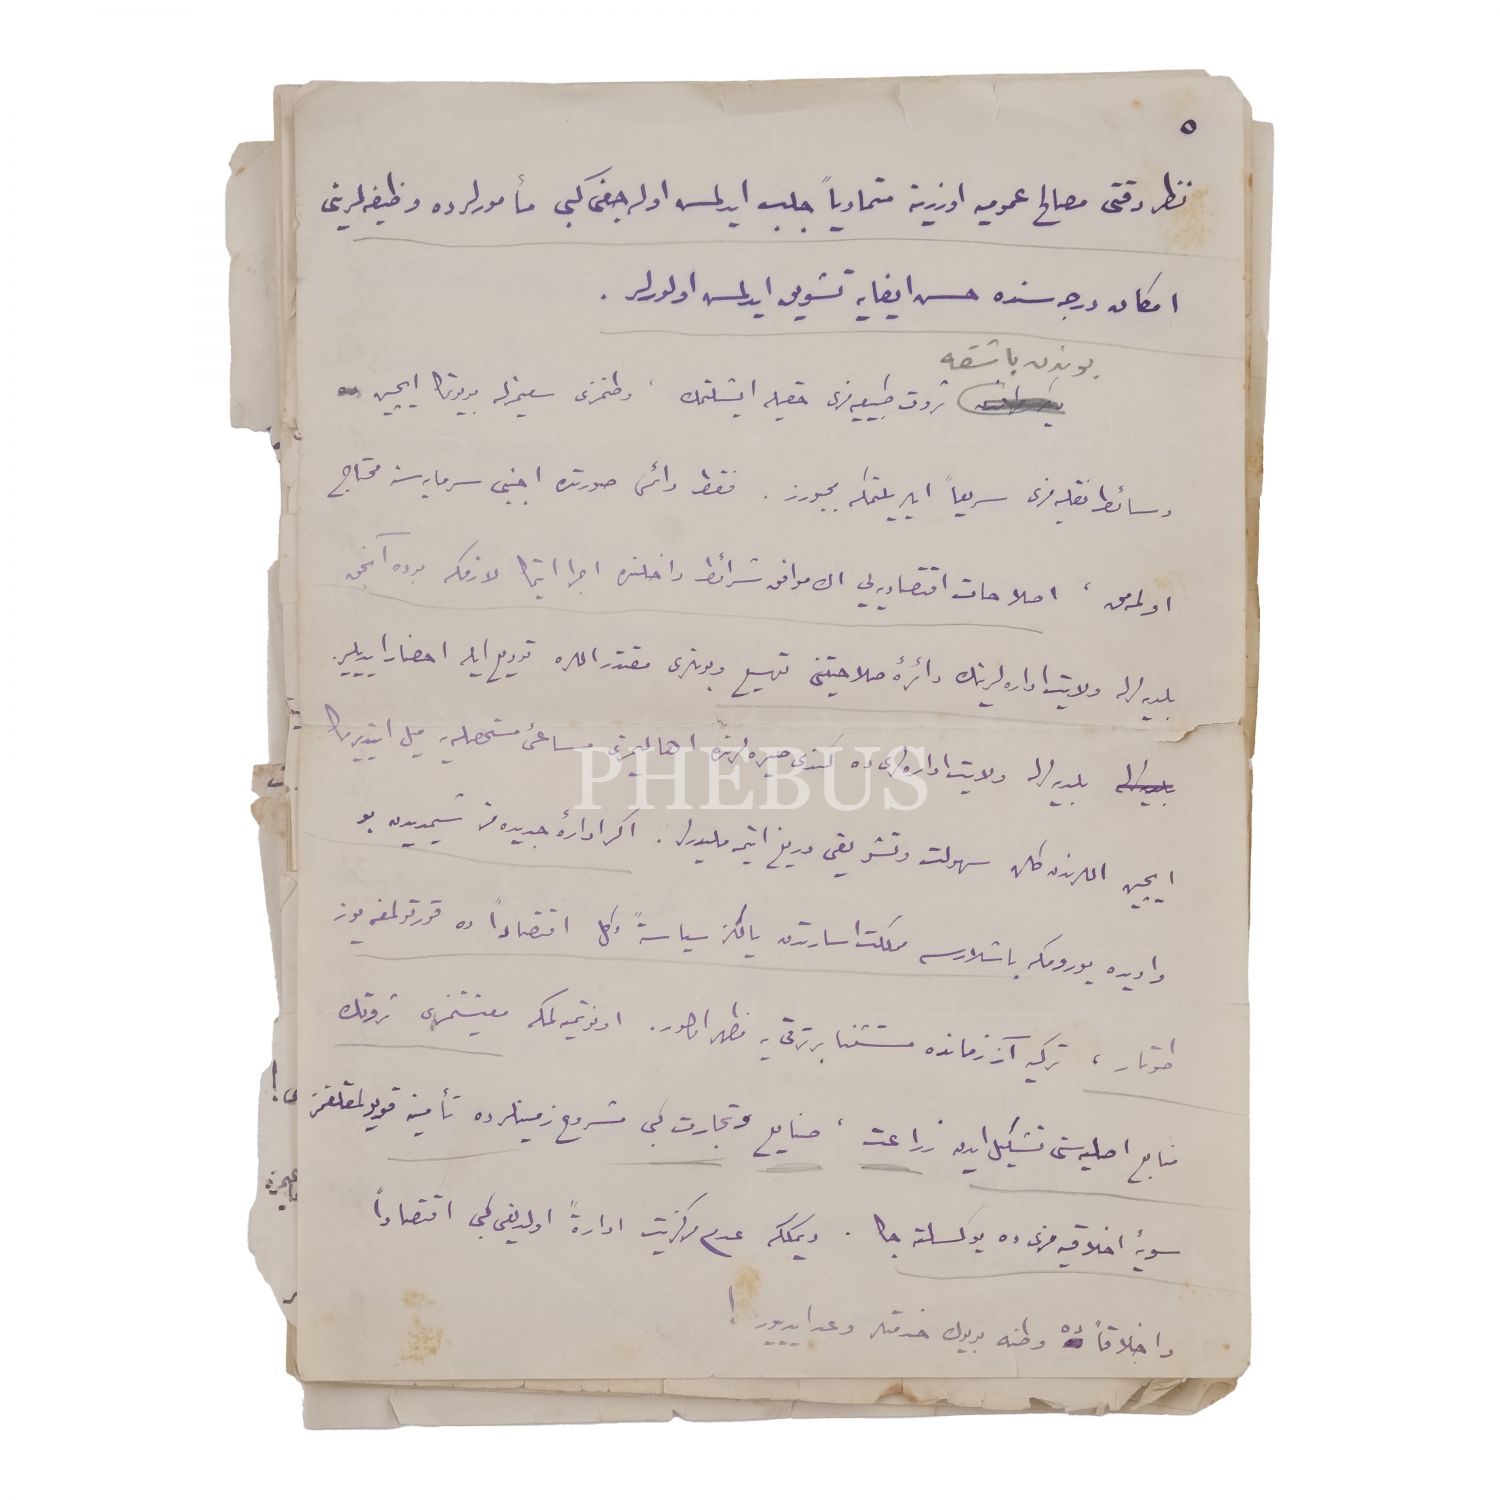 ٥
نظر دقتی مصالح عمومیه اوزرینه متمادیاً جلب ایدلمش اوله‌جغی کبی مأمورلرده وظیفه‌لرینی
امکان درجه‌سنده حسن ایفایه تشویق ایدلمش اولورلر .
بوندن باشقه
ثروت طبیعیه‌مزی حقیله ایشلتمك ، وطنمزی سعیمزله بیوتمك ایچین
وسائط نقلیه‌مزی سریعاً ایلریلتمکه مجبورز . فقط دائمی صورتده اجنبی سرمایه‌سنه محتاج
اولمه‌مق ، اصلاحات اقتصادیه‌یی اك موافق شرائط داخلنده اجرا ایتمك لازمکه بوده آنجق
بلدیه‌لرله ولایت اداره‌لرینك دائرهٔ صلاحیتنی توسیع و بونلری مقتدر اللره تودیع ایله احضار ایدیلیر .
بلدیه‌لرله ولایت اداره‌لری ده کندی حوزه‌لرنده اهالیمزی مساعیٔ مستحصله‌یه میل ایتدیرمك
ایچین اللرندن کلن سهولت و تشویقی دریغ ایتمه‌ملیدرلر . اکر ادارهٔ جدیده‌مز شیمدیدن بو
وادیده یورومکه باشلارسه مملکت اسارتدن یالکز سیاسةً دکل اقتصاداً ده قورتولمغه یوز
طوتار ، ترکیه آز زمانده مستثنا بر ترقی‌یه مظهر اولور . اونوتمیه‌لمکه معیشتمزی ثروتك
منابع اصلیه‌سنی تشکیل ایدن زراعت ، صنایع و تجارت کبی مشروع زمینلرده تأمینه قویولمقلغمز
سویهٔ اخلاقیه‌مزی ده یوکسلته‌جك . دیمککه عدم مرکزیت ادارةً اولدیغی کبی اقتصاداً
و اخلاقاً ده وطنه بویوك خدمتلر وعد ایدیور !
PHEBUS